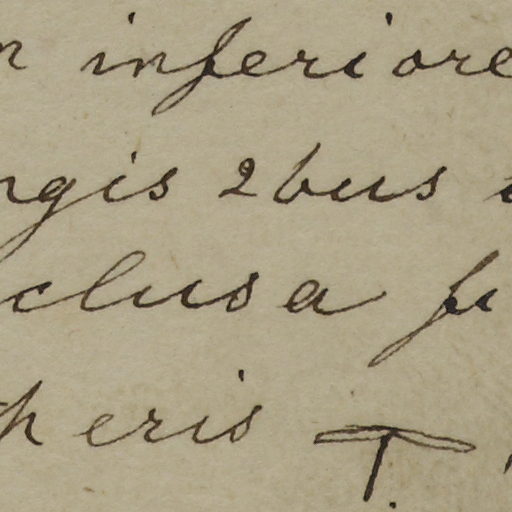 n inferiore
ngis 2bus
clusa fu
heris T.